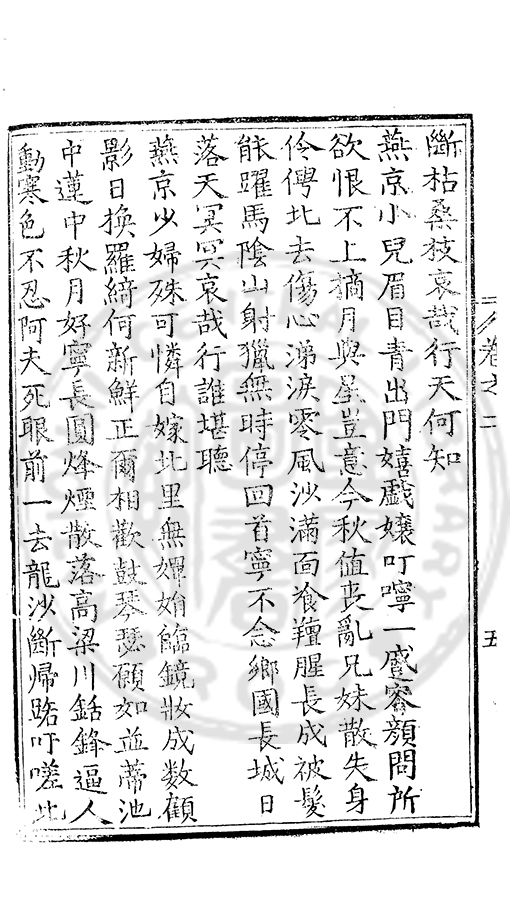 斷枯桑枝哀哉行天何知
燕京小兒眉目青出門嬉戲孃叮嚀一慼容顏問所
欲恨不上摘月與星豈意今秋值喪亂兄妹散失身
伶俜北去傷心涕淚零風沙滿面飡羶腥長成被髮
能躍馬陰山射獵無時停回首寧不念鄉國長城日
落天冥冥哀哉行誰堪聽
燕京少婦殊可憐自嫁北里無嬋娟臨鏡妝成數顧
影日換羅綺何新鮮正爾相歡鼓琴瑟願如並蒂池
中蓮中秋月好寧長圓烽煙散落高梁川銛鋒逼人
動寒色不忍阿夫死眼前一去龍沙斷帰路吁嗟此
卷之二
五